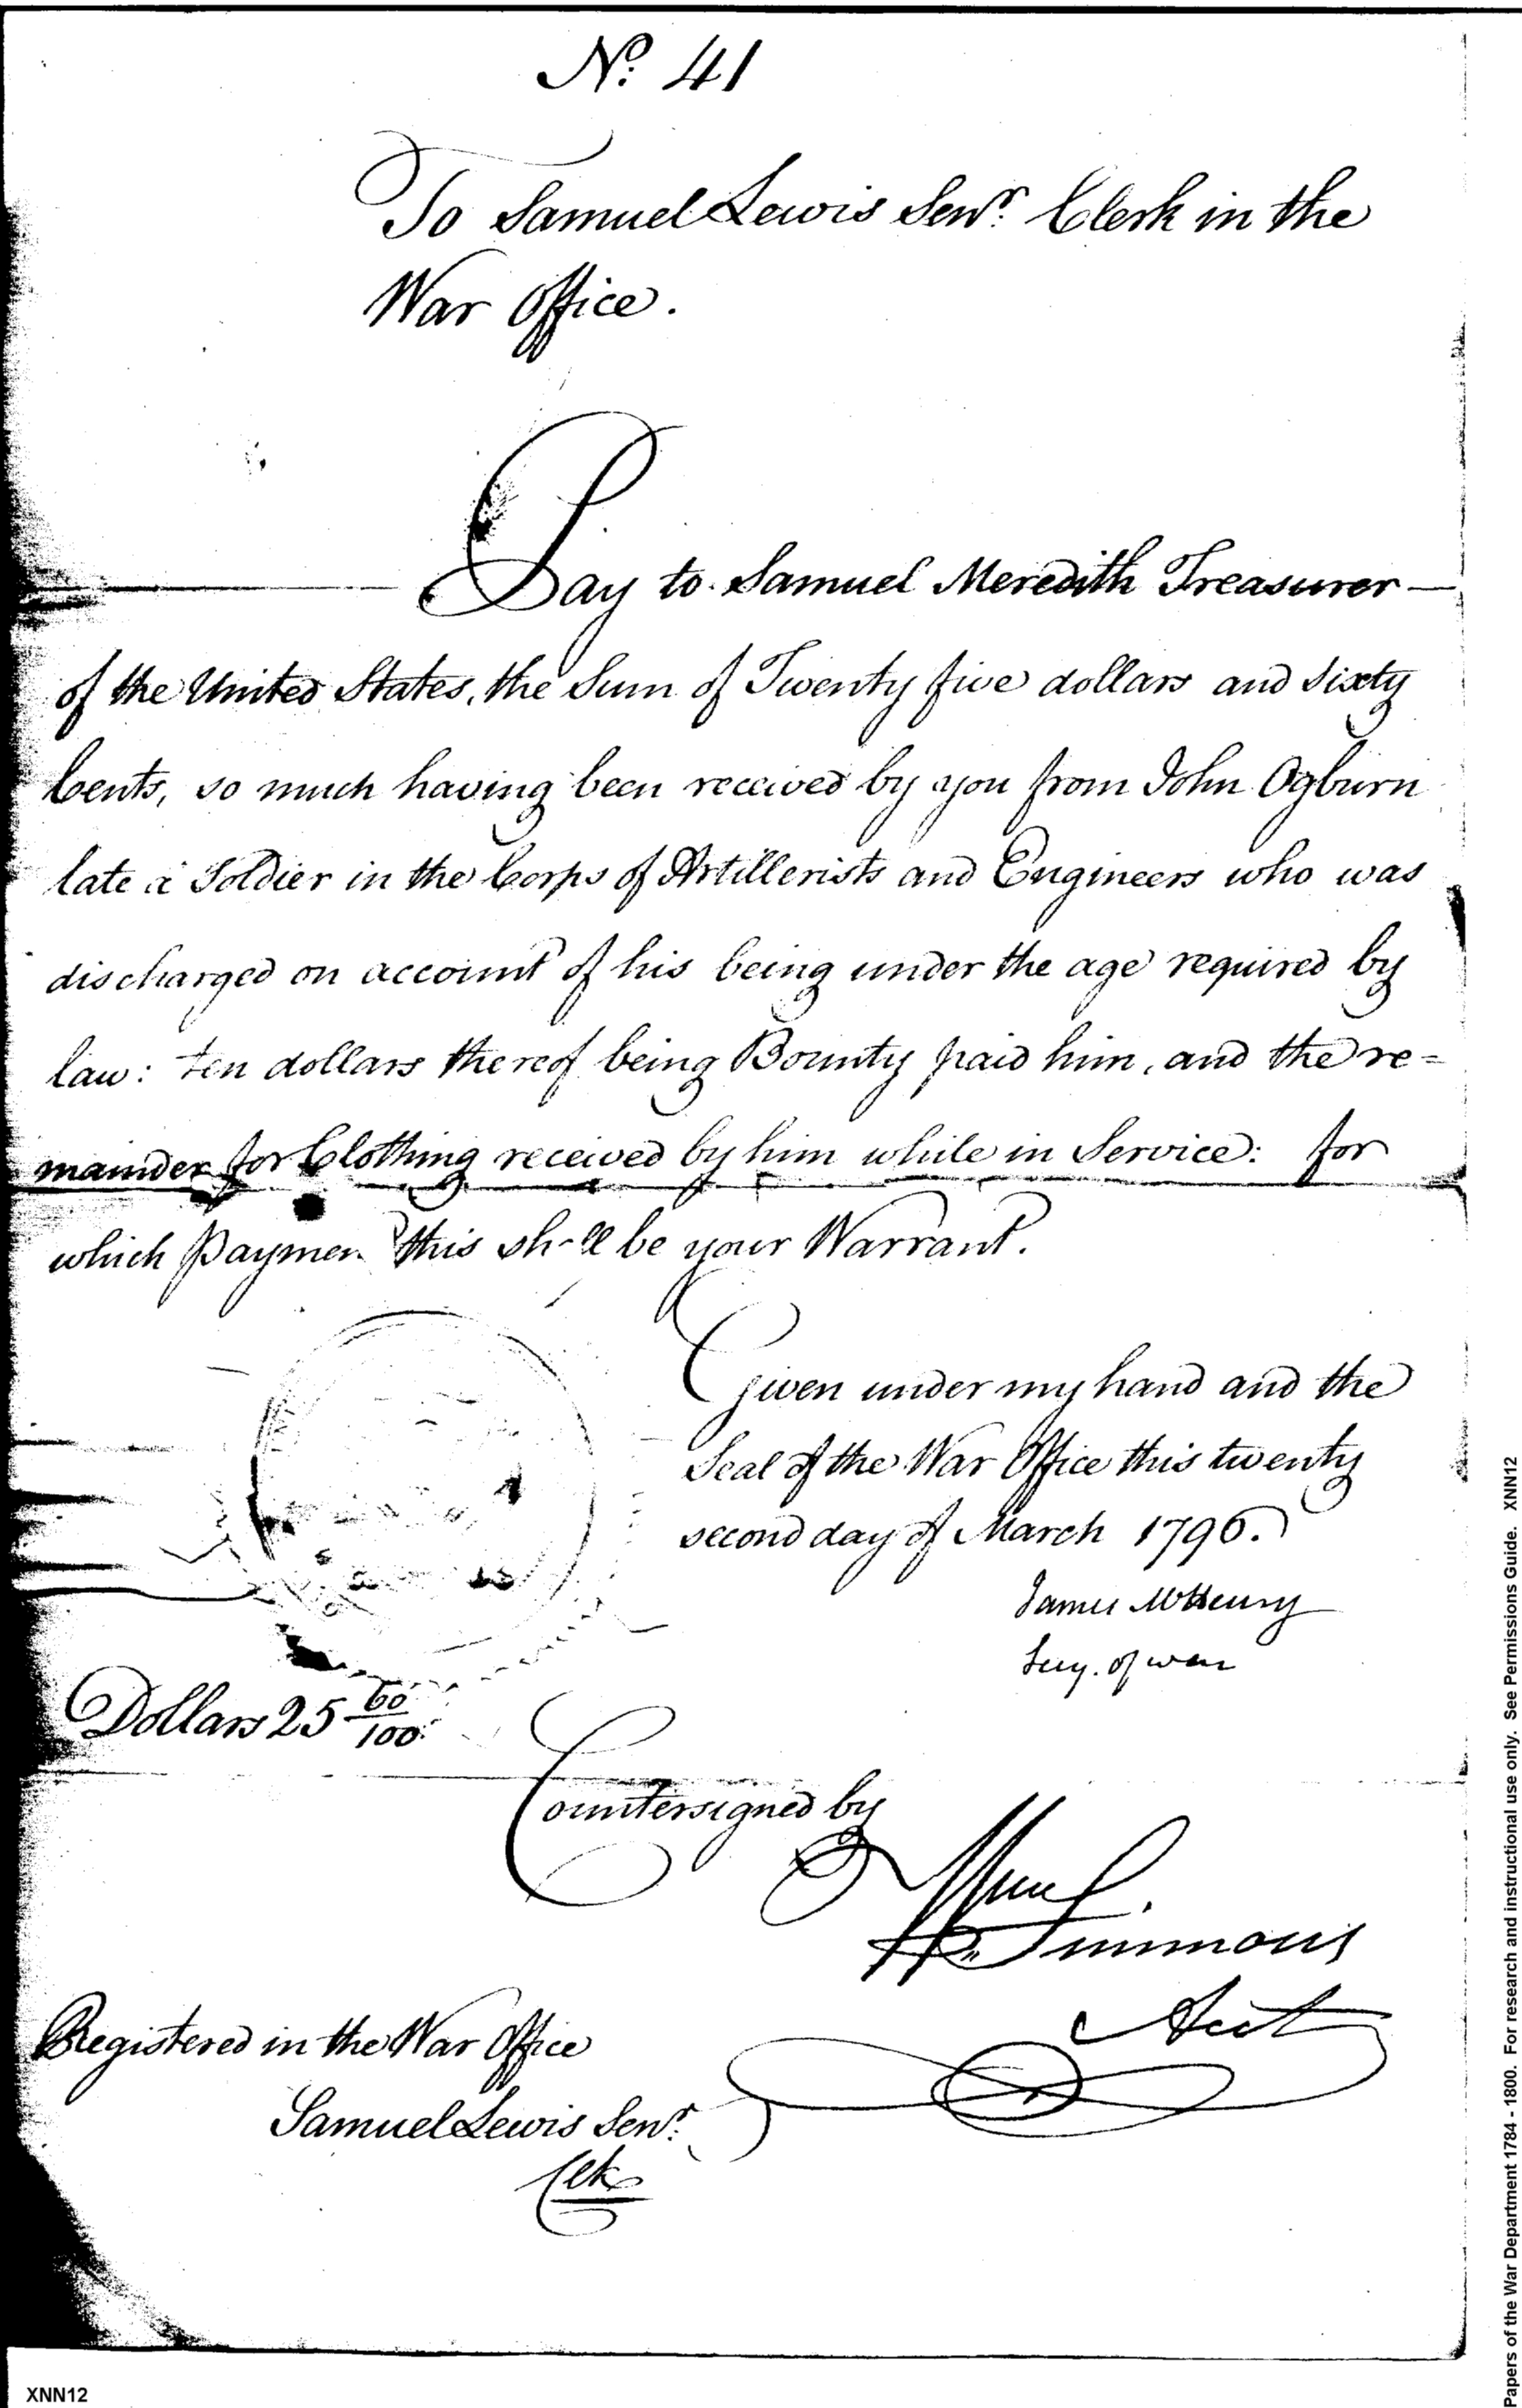 No. 41
To Samuel Lewis Senr. Clerk in the
War Office.
Pay to Samuel Meredith Treasurer
of the United States, the Sum of Twenty five dollars and sixty
Cents, so much having been received by you from John Ogburn
late a Soldier in the Corps of Artillerists and Engineers who was
discharged on account of his being under the age required by
law: ten dollars thereof being Bounty paid him, and the re=
mainder for Clothing received by him while in Service: for
which Payment this shall be your Warrant.
Given under my hand and the
Seal of the War Office this twenty
second day of March 1796.
James McHenry
Secy. of war
Dollars 25 60/100
Countersigned by
Wm Simmons
Acct
Registered in the War Office
Samuel Lewis Senr.
Clk
XNN12
Papers of the War Department 1784 - 1800. For research and instructional use only. See Permissions Guide. XNN12